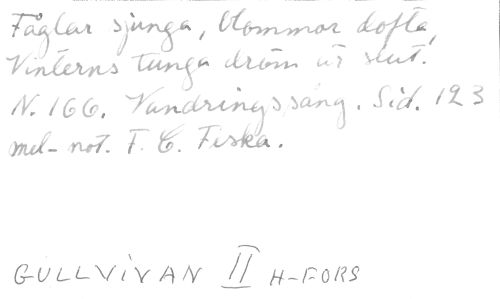 Fåglar sjunga, blommor dofta,
Vinterns tunga dröm är slut.
N. 166. Vandringssång. Sid. 123
mel-not. F. C. Fiska.
GULLVIVAN II H-FORS